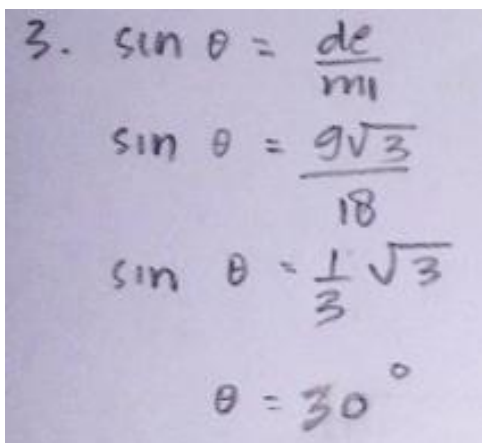 3. sin θ = de/mi
sin θ = 9√3/18
sin θ = 1/3 √3
θ = 30°